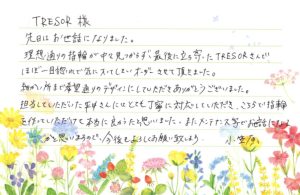 TRESOR 様
先日はお世話になりました。
理想通りの指輪が中々見つからず、最後に立ち寄ったTRESORさんで
ほぼ一目惚れで気に入ってしまいオーダーさせて頂きました。
細かい所まで希望通りのデザインにしていただきありがとうございました。
担当していただいた さんにはとても丁寧に対応していただき、こちらで指輪
を作っていただけて本当に良かったと思いました。またメンテナンス等でお世話になる
かと思いますので、今後ともよろしくお願い致します。